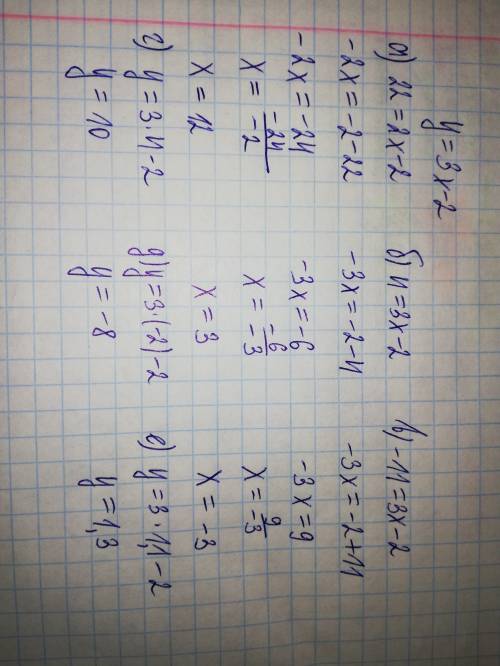 y=3x-2
а) 22=2x-2 б) 4=3x-2 в) -11=3x-2
-2x=-2-22 -3x=-2-4 -3x=-2+11
-2x=-24 -3x=-6 -3x=9
x=-24/-2 x=-6/-3 x=9/-3
x=12 x=3 x=-3
г) y=3·4-2 д) y=3·(-2)-2 е) y=3·1,1-2
y=10 y=-8 y=1,3